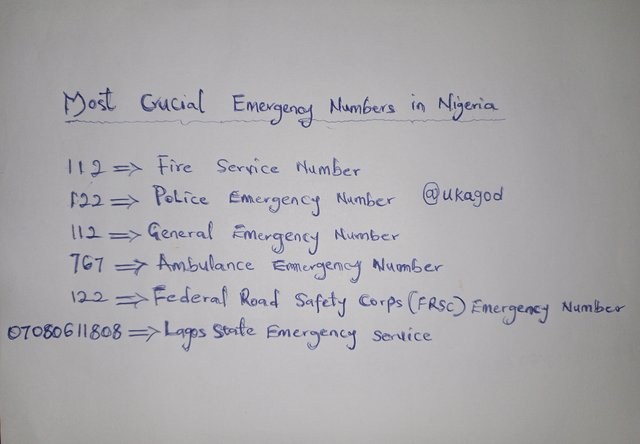 Most Crucial Emergency Numbers in Nigeria
112 => Fire Service Number
122 => Police Emergency Number @ukagod
112 => General Emergency Number
767 => Ambulance Emergency Number
122 => Federal Road Safety Corps (FRSC) Emergency Number
07080611808 => Lagos State Emergency Service